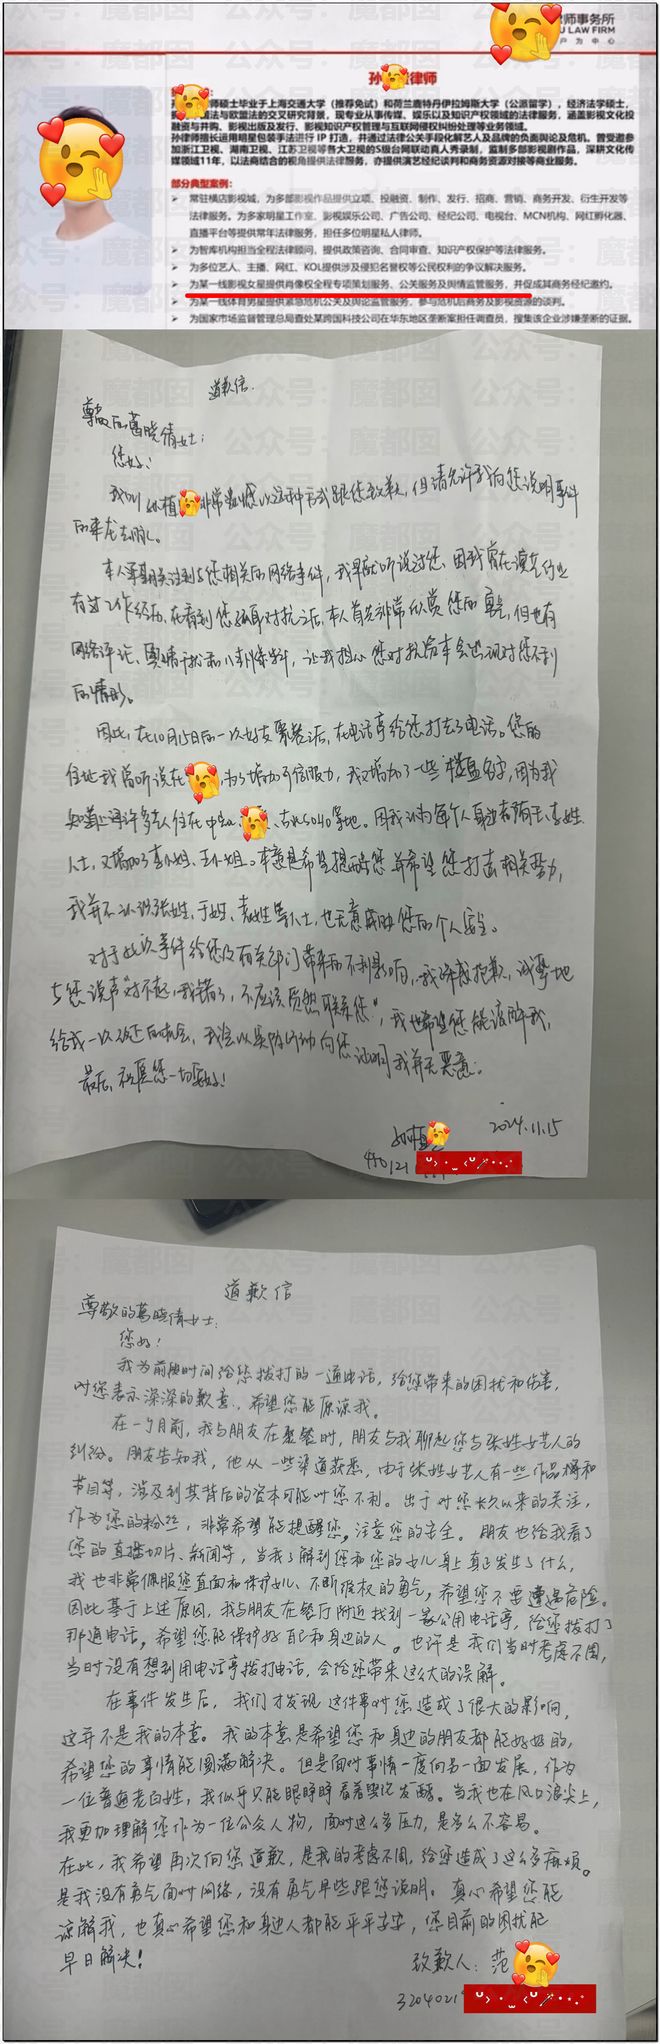 律师事务所
U LAW FIRM
户为中心
孙 律师
师硕士毕业于上海交通大学（推荐免试）和荷兰鹿特丹伊拉姆斯大学（公派留学），经济法学硕士，
国法与欧盟法的交叉研究背景，现专业从事传媒、娱乐以及知识产权领域的法律服务，涵盖影视文化投
融资与并购、影视出版及发行、影视知识产权管理与互联网侵权纠纷处理等业务领域。
孙律师擅长运用明星包装手法进行 IP 打造，并通过法律公关手段化解艺人及品牌的负面舆论及危机。曾受邀参
加浙江卫视、湖南卫视、江苏卫视等各大卫视的S级台网联动真人秀录制，监制多部影视剧作品，深耕文化传
媒领域11年，以法商结合的视角提供法律服务，亦提供演艺经纪谈判和商务资源对接等商业服务。
部分典型案例：
常驻横店影视城，为多部影视作品提供立项、投融资、制作、发行、招商、营销、商务开发、衍生开发等
法律服务。为多家明星工作室、影视娱乐公司、广告公司、经纪公司、电视台、MCN机构、网红孵化器、
直播平台等提供常年法律服务，担任多位明星私人律师。
为智库机构担当全程法律顾问，提供政策咨询、合同审查、知识产权保护等法律服务。
为多位艺人、主播、网红、KOL提供涉及侵犯名誉权等公民权利的争议解决服务。
为某一线影视女星提供肖像权全程专项策划服务、公关服务及舆情监管服务，并促成其商务经纪邀约。
为某一线体育男星提供紧急危机公关及舆论监管服务，参与危机后商务及影视资源的谈判。
为国家市场监督管理总局查处某跨国科技公司在华东地区垄断案担任调查员，搜集该企业涉嫌垄断的证据。
道歉信.
尊敬的葛晓倩女士：
您好！
我叫孙植 非常遗憾以这种方式跟您致歉，但请允许我向您说明事件
的来龙去脉。
本人军期关注到与您相关的网络事件，我早就听说过您，因我曾在演艺行业
有过工作经历，在看到您孤身对抗之后，本人首先非常欣赏您的勇气，但也有
网络评论、舆情干扰和八卦爆料，让我担心您对抗资本会出现对您不利
的情形。
因此，在10月15日的一次好友聚餐之后，在电话亭给您打去了电话。您的
住址我曾听说在 ，为了增加可信服力，我又增加了一些楼盘名字，因为我
知道上海许多艺人住在中 、 SOHO等地。因我认为每个人身边都有王、李姓
人士，又增加了李小姐、王小姐。本意是希望提醒您并希望您打击相关势力，
我并不认识张姓、于姓、袁姓等人士，也无意威胁您的个人安全。
对于此次事件给您及有关部门带来的不利影响，我深感抱歉，诚挚地
与您说声“对不起，我错了，不应该贸然联系您”，我也希望您能谅解我，
给我一次改正的机会，我会以实际行动向您证明我并无恶意。
最后，祝愿您一切安好！
孙植
2024.11.15
430121
道歉信
尊敬的葛晓倩女士：
您好！
我为前段时间给您拨打的一通电话，给您带来的困扰和伤害，
对您表示深深的歉意，希望您能原谅我。
在一个月前，我与朋友在聚餐时，朋友与我聊起您与张姓女艺人的
纠纷。朋友告知我，他从一些渠道获悉，由于张姓女艺人有一些作品播和
节目等，涉及到其背后的资本可能对您不利。出于对您长久以来的关注，
作为您的粉丝，非常希望能提醒您，注意您的安全。朋友也给我看了
您的直播切片、新闻等，当我了解到您和您的女儿身上真正发生了什么，
我也非常佩服您直面和保护女儿、不断维权的勇气，希望您不要遭遇危险。
因此基于上述原因，我与朋友在餐厅附近找到一家公用电话亭，给您拨打了
那通电话，希望您能保护好自己和身边的人。也许是我们当时考虑不周，
当时没有想到用电话亭拨打电话，会给您带来这么大的误解。
在事件发生后，我们才发现这件事对您造成了很大的影响，
这并不是我的本意。我的本意是希望您和身边的朋友都能好好的，
希望您的事情能圆满解决。但是面对事情一度向另一面发展，作为
一位普通老百姓，我似乎只能眼睁睁看着舆论发酵。当我也在风口浪尖上，
我更加理解您作为一位公众人物，面对这么多压力，是多么不容易。
在此，我希望再次向您道歉，是我的考虑不周，给您造成了这么多麻烦。
是我没有勇气面对网络，没有勇气早些跟您说明。真心希望您能
谅解我，也真心希望您和身边人都能平平安安，您目前的困扰能
早日解决！
致歉人：范
3204021
公众号：魔都囡